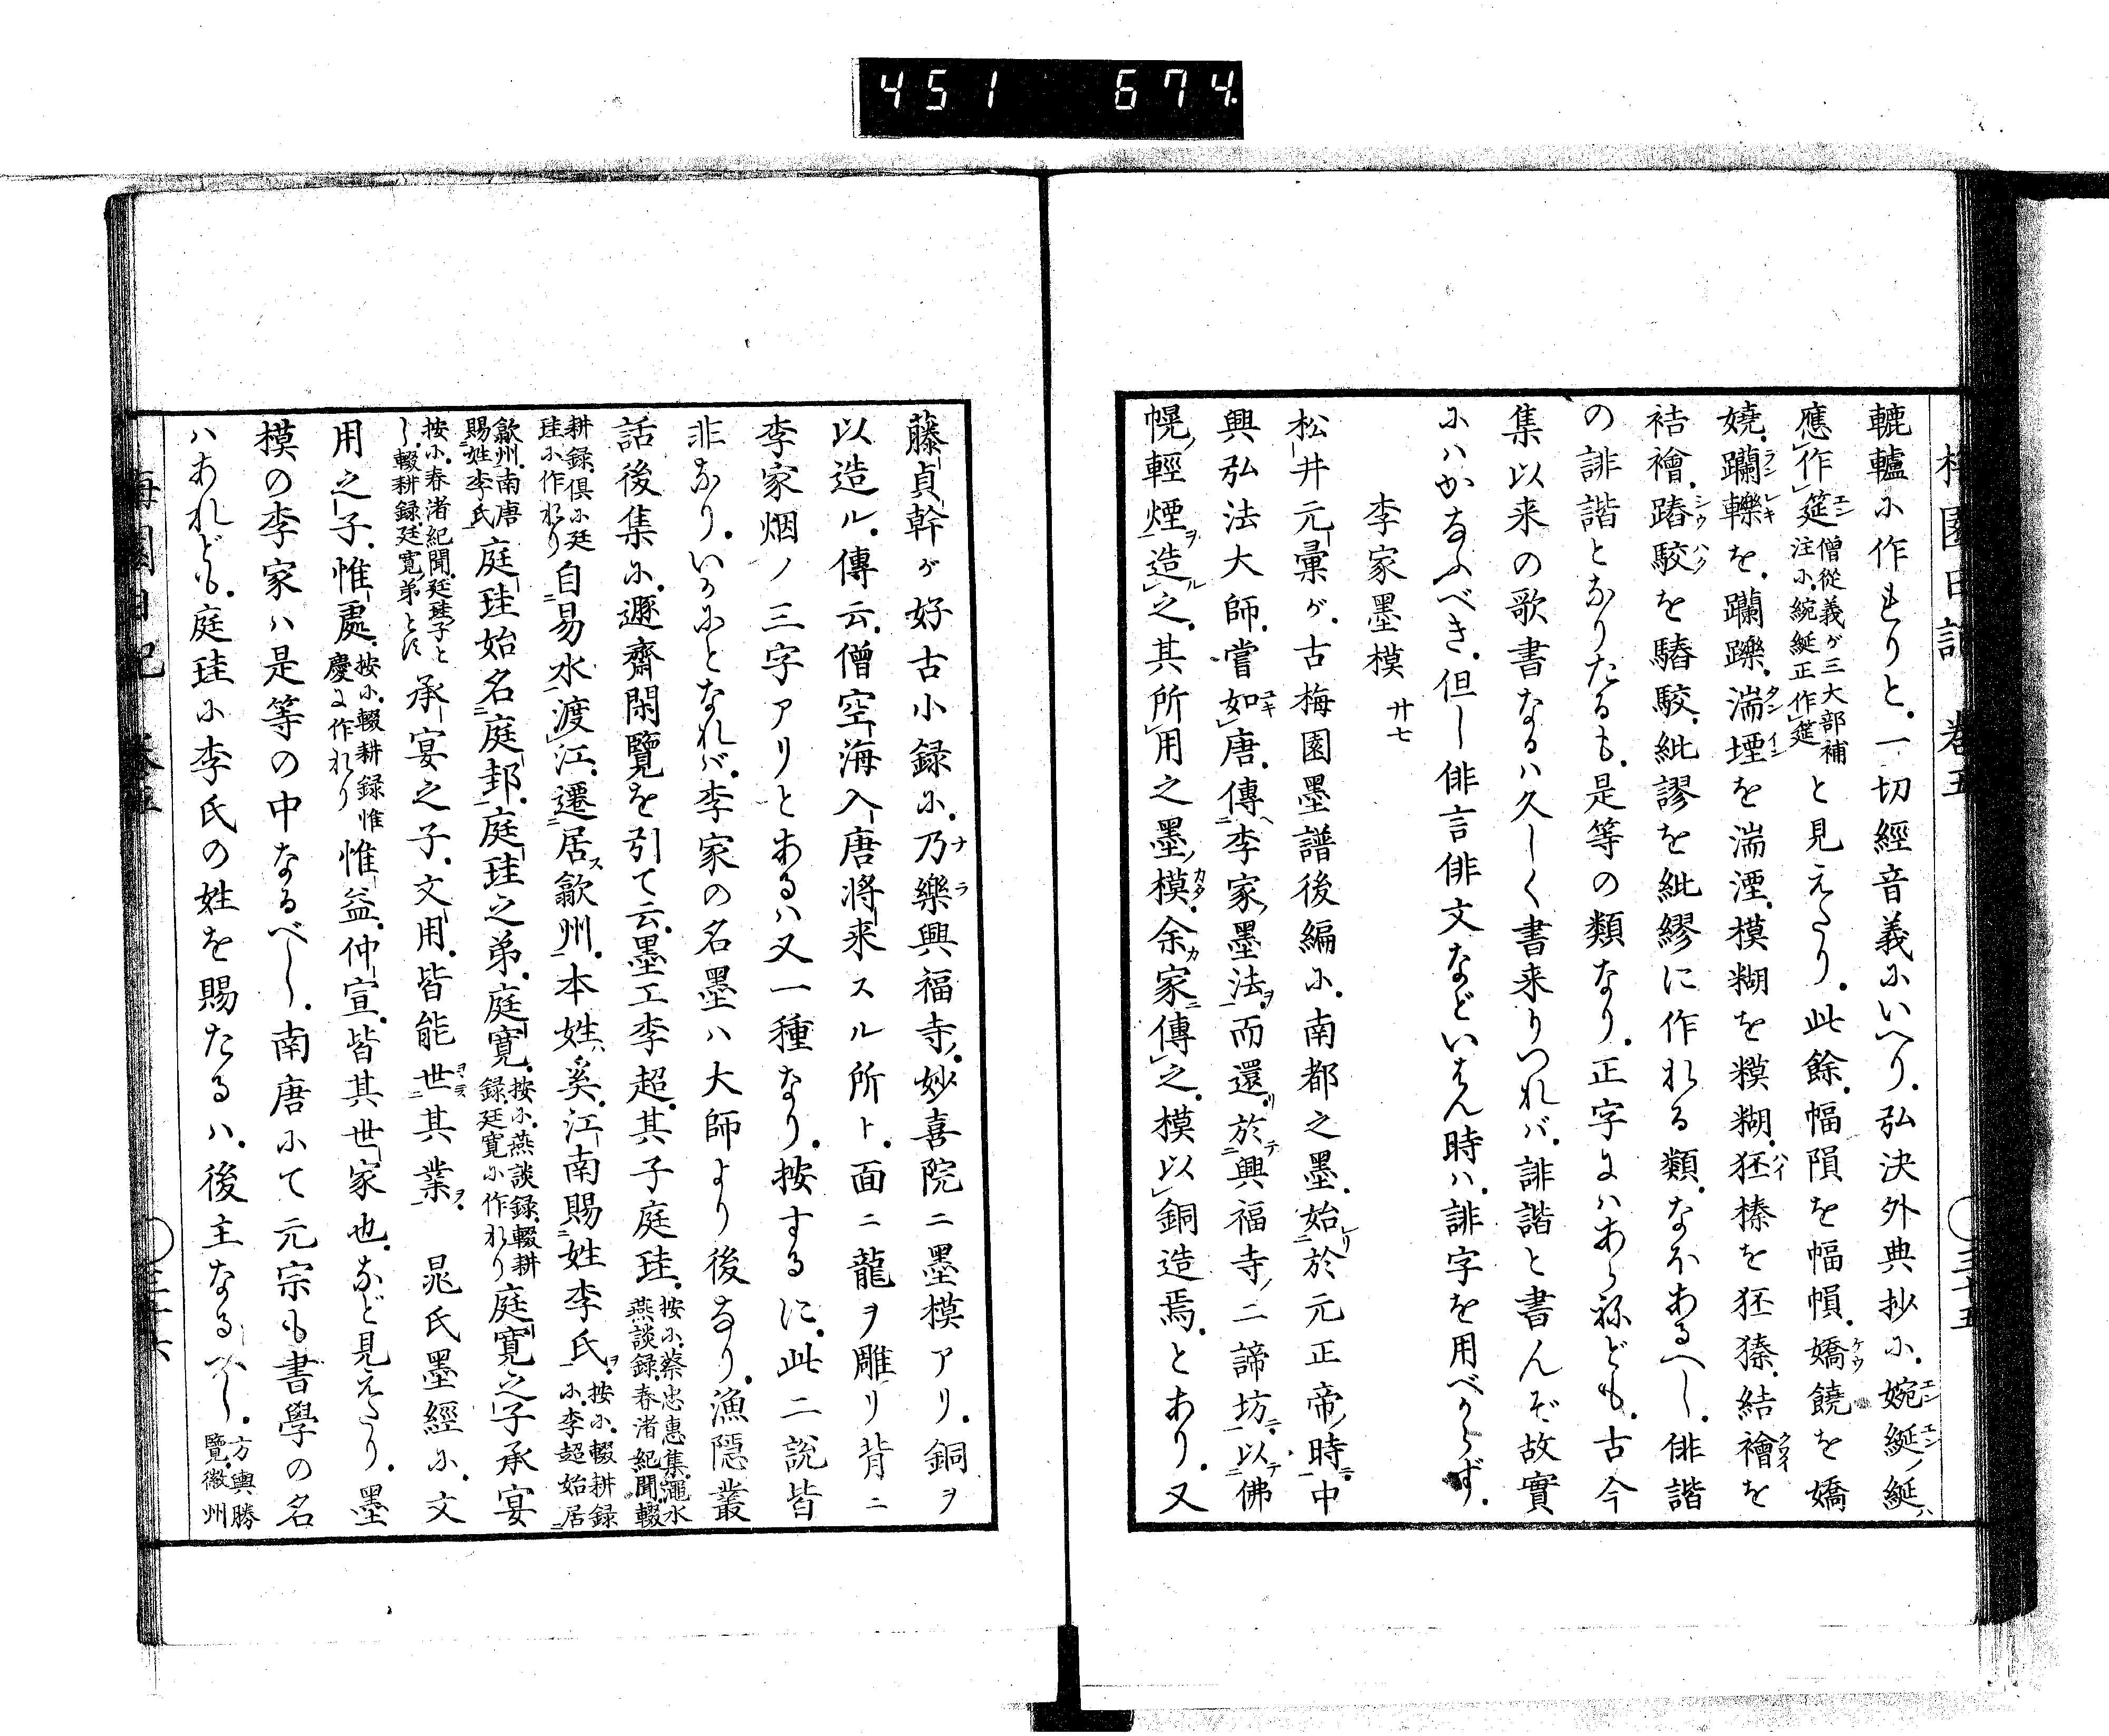 451 674.
梅園日記 卷五
三十五
轆轤に作れりと。一切經音義にいへり。弘決外典抄に。婉綖ノ綖ハ
應作筵 僧從義が三大部補注に。綩綖正作筵 と見えたり。此餘。幅隕を幅幁。嬌饒を嬌
嬈。躝轢を。躝躒。湍堙を湍湮。模糊を糢糊。狉榛を狉獉。結襘を
袺襘。踳駁を駁。紕謬を紕繆に作れる類。なほあるへし。俳諧
の誹諧となりたるも。是等の類なり。正字にハあらねども。古今
集以来の歌書なるハ久しく書来りつれバ。誹諧と書んぞ故實
にハかなふべき。但し俳言俳文などいはん時ハ。誹字を用べからず。
李家墨模 廿七
松井元彙ガ。古梅園墨譜後編に。南都之墨。始於元正帝ノ時。中
興弘法大師。嘗如唐。傳李家ノ墨法。而還於興福寺ノ二諦坊。以佛
幌ノ輕煙造之。其所用之墨ノ模。余家傳之。模以銅造焉。とあり。又
藤貞幹ガ好古小録に。乃樂興福寺ノ妙喜院ニ墨模アリ。銅ヲ
以造ル。傳云。僧空海入唐將来スル所ト。面ニ龍ヲ雕リ背ニ
李家烟ノ三字アリとあるハ又一種なり。按するに。此二説皆
非なり。いかにとなれバ。李家の名墨ハ大師より後なり。漁隠叢
話後集に。遯齋閑覽を引て云。墨工李超。其子庭珪。 按に。蔡忠惠集。澠水燕談録。春渚紀聞。輟
耕録。倶に廷珪に作れり 自易水渡江。遷居歙州。本姓ハ奚。江南賜姓李氏。 按に。輟耕録に。李超始居
歙州。南唐賜姓李氏 庭珪始名庭邽。庭珪之弟。庭寛。 按に。燕談録。輟耕録。廷寛に作れり 庭寛之子承宴
按に。春渚紀聞。廷珪子とし。輟耕録。廷寛弟とす 承宴之子。文用。皆能世其業。 晁氏墨經に。文
用之子。惟處。 按に。輟耕録惟慶に作れり 惟益。仲宣。皆其世家也。など見えたり。墨
模の李家ハ是等の中なるべし。南唐にて元宗も書學の名
ハあれども。庭珪に李氏の姓を賜たるハ。後主なるべし。 方輿勝覽。徽州
梅園日記 卷五
三十六